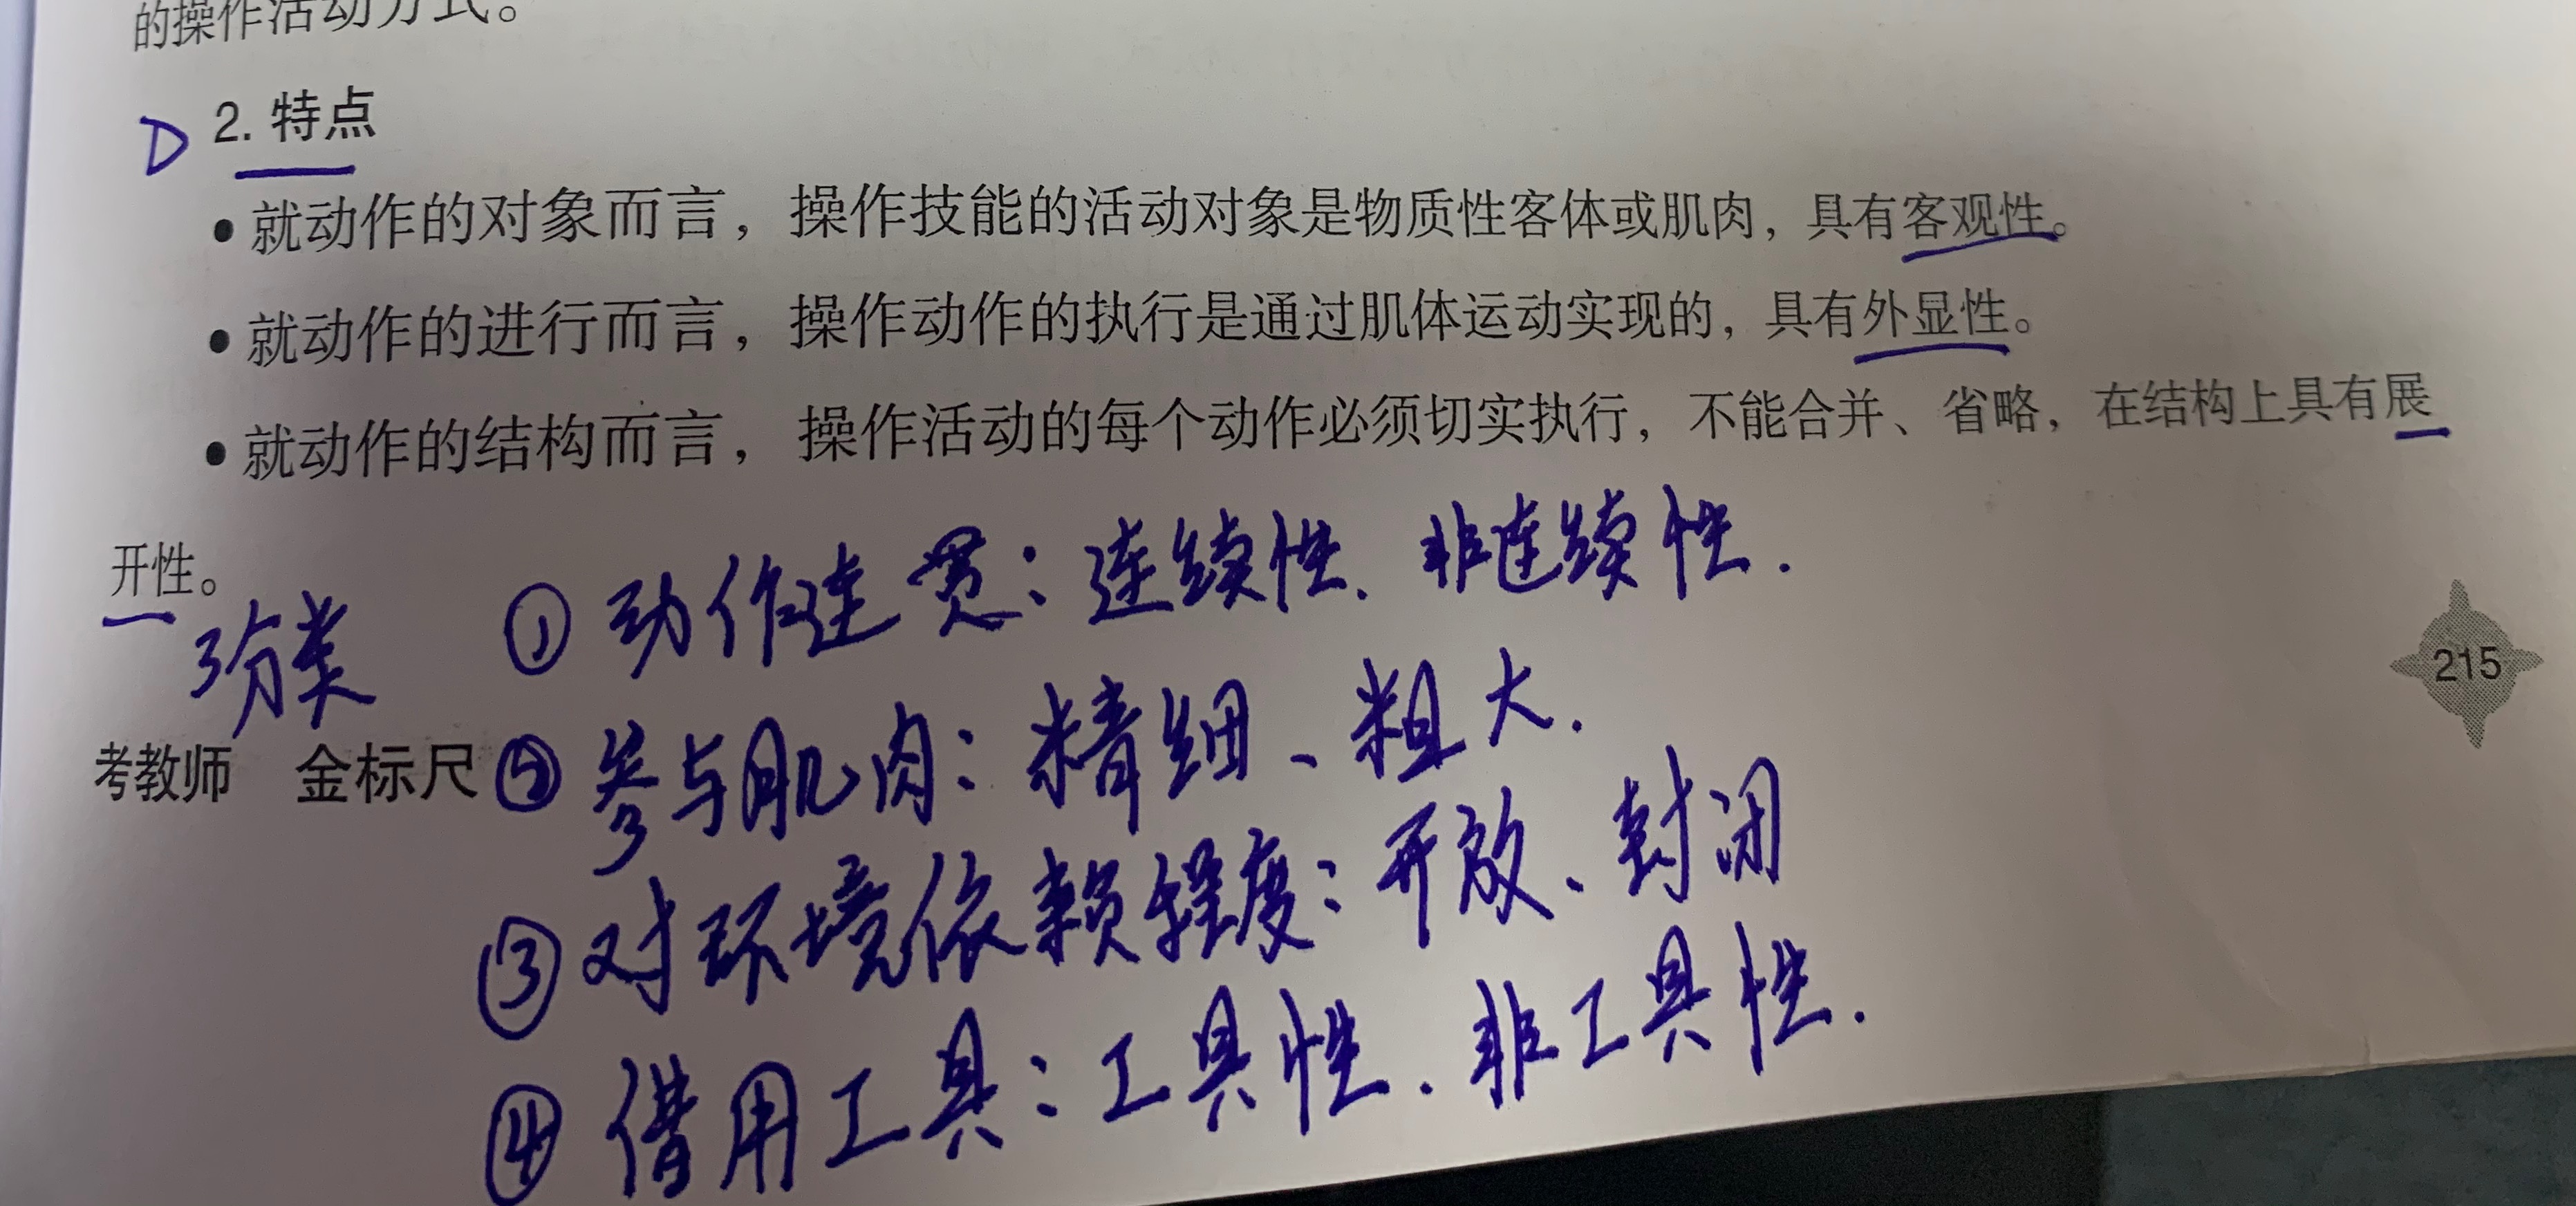 的操作活动方式。
D 2. 特点
• 就动作的对象而言，操作技能的活动对象是物质性客体或肌肉，具有客观性。
• 就动作的进行而言，操作动作的执行是通过肌体运动实现的，具有外显性。
• 就动作的结构而言，操作活动的每个动作必须切实执行，不能合并、省略，在结构上具有展
开性。
3分类
① 动作连贯：连续性、非连续性.
② 参与肌肉：精细、粗大.
③ 对环境依赖程度：开放、封闭
④ 借用工具：工具性. 非工具性.
215
考教师 金标尺